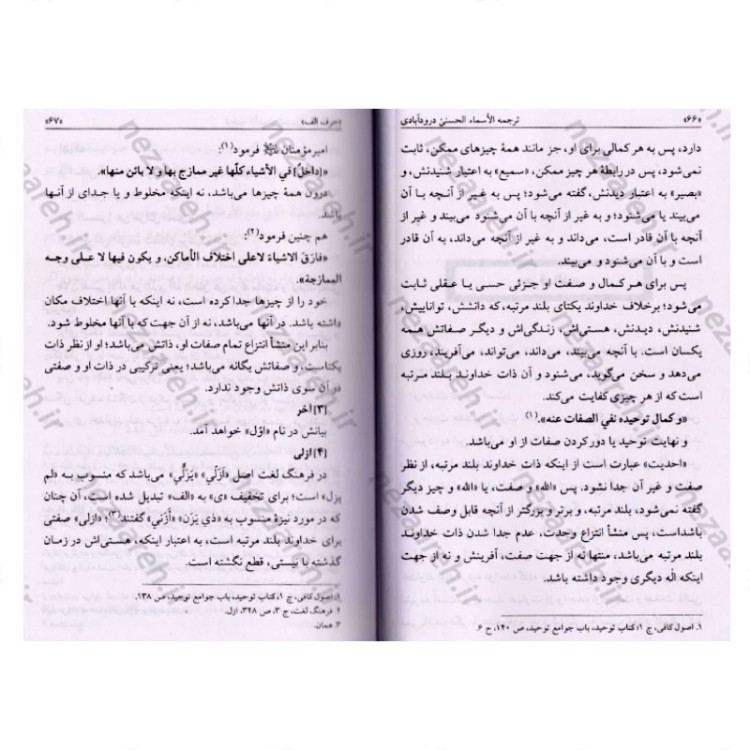 «۶۶» ترجمه الأسماء الحسنیٰ درودآبادی
دارد، پس به هر کمالی برای او، جز مانند همهٔ چیزهای ممکن، ثابت
نمی‌شود، پس در رابطهٔ هر چیز ممکن، «سمیع» به اعتبار شنیدنش، و
«بصیر» به اعتبار دیدنش، گفته می‌شود؛ پس به غیر از آنچه با آن
می‌بیند یا می‌شنود؛ و به غیر از آنچه با آن می‌شنود می‌بیند و غیر از
آنچه با آن قادر است، می‌داند و به غیر از آنچه می‌داند، به آن قادر
است و با آن می‌شنود و می‌بیند.
پس برای هر کمال و صفت او جزئی حسی یا عقلی ثابت
می‌شود؛ برخلاف خداوند یکتای بلند مرتبه، که دانشش، تواناییش،
شنیدنش، دیدنش، هستی‌اش، زندگی‌اش و دیگر صفاتش همه
یکسان است. با آنچه می‌بیند، می‌داند، می‌تواند، می‌آفریند، روزی
می‌دهد و سخن می‌گوید، می‌شنود و آن ذات خداوند بلند مرتبه
است که از هر چیزی کفایت می‌کند.
«و کمال توحیده نفي الصفات عنه».(۱)
و نهایت توحید یا دور کردن صفات از او می‌باشد.
«احدیت» عبارت است از اینکه ذات خداوند بلند مرتبه، از نظر
صفت و غیر آن جدا نشود. پس «الله» و صفت، یا «الله» و چیز دیگر
گفته نمی‌شود، بلند مرتبه، و برتر و بزرگتر از آنچه قابل وصف شدن
باشداست، پس منشأ انتزاع وحدت، عدم جدا شدن ذات خداوند
بلند مرتبه می‌باشد، منتها نه از جهت صفت، آفرینش و نه از جهت
اینکه اله دیگری وجود داشته باشد.
۱. اصول کافی، ج ۱؛ کتاب توحید، باب جوامع توحید، ص ۱۴۰، ح ۶.
«حرف الف» «۶۷»
امیرمؤمنان فرمود(۱):
«[داخلٌ] في الأشیاء کلّها غیر ممازج بها و لا بائن منها».
درون همهٔ چیزها می‌باشد، نه اینکه مخلوط و یا جدای از آنها
باشد.
هم چنین فرمود(۲):
«فارَق الاشیاءَ لاعلی اختلاف الأماکن، و یکون فیها لا علی وجه
الممازجة».
خود را از چیزها جدا کرده است، نه اینکه با آنها اختلاف مکان
داشته باشد. در آنها می‌باشد، نه از آن جهت که با آنها مخلوط شود.
بنابر این منشأ انتزاع تمام صفات او، ذاتش می‌باشد؛ او از نظر ذات
یکتاست، و صفاتش یگانه می‌باشد؛ یعنی ترکیبی در ذات او و صفتی
در آن سوی ذاتش وجود ندارد.
[۳] آخر
بیانش در نام «اوّل» خواهد آمد.
[۴] ازلی
در فرهنگ لغت اصل «أزلّي» «یَزَلّي» می‌باشد که منسوب به «لم
یزل» است؛ برای تخفیف «ی» به «الف» تبدیل شده است، آن چنان
که در مورد نیزهٔ منسوب به «ذي یَزَن» «أزَني» گفتند(۳)؛ «ازلی» صفتی
برای خداوند بلند مرتبه است، به اعتبار اینکه، هستی‌اش در زمان
گذشته با نیستی، قطع نگشته است.
۱. اصول کافی، ج ۱، کتاب توحید، باب جوامع توحید، ص ۱۳۸.
۲. فرهنگ لغت، ج ۳، ص ۳۲۸، ازل.
۳. همان.
nezaareh.ir